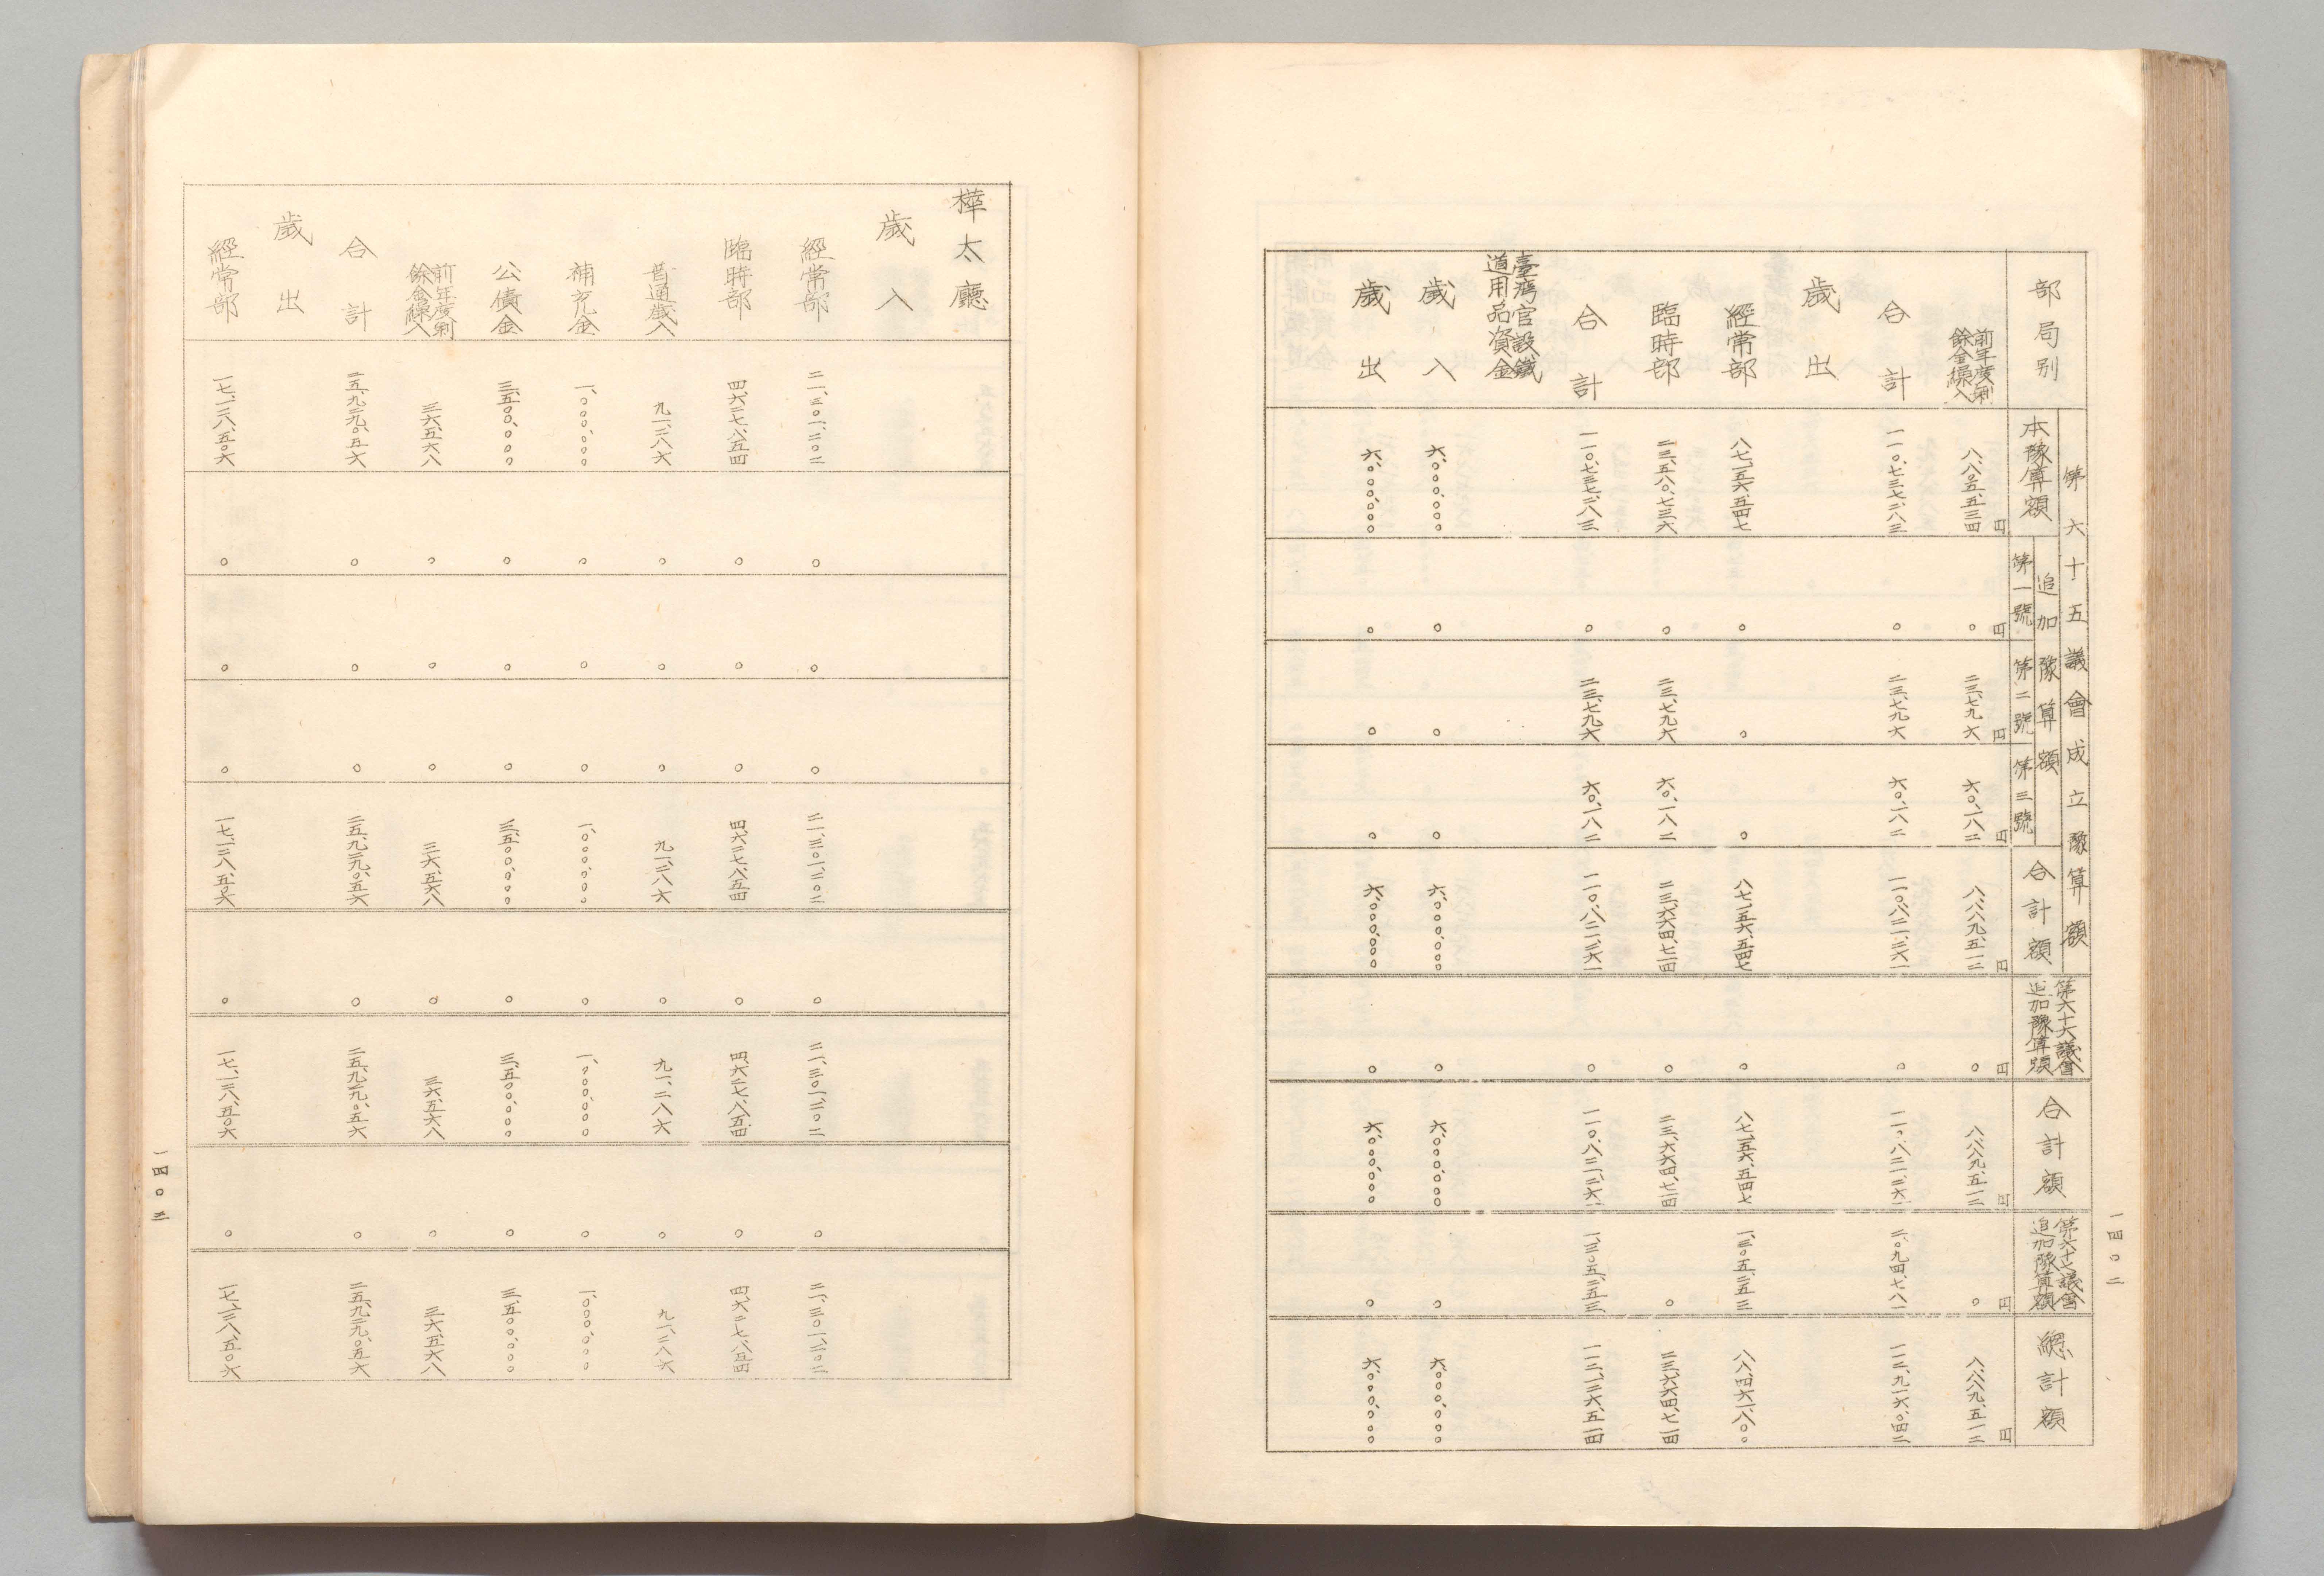 一四〇二
第六十五議會成立豫算額
部局別
本豫算額
追加豫算額
第一號
第二號
第三號
合計額
第六十六議會
追加豫算額
合計額
第六十七議會
追加豫算額
總計額
前年度剰
餘金繰入
八、八〇五、五三四円
〇円
二三、七九六円
六〇、一八二円
八、八八九、五一二円
〇円
八、八八九、五一二円
〇円
八、八八九、五一二円
合計
一一〇、七三七、二八三
〇
二三、七九六
六〇、一八二
一一〇、八二一、二六一
〇
一一〇、八二一、二六一
二、〇九四、七八一
一一二、九一六、〇四二
歳出
經常部
八七、一五六、五四七
〇
〇
〇
八七、一五六、五四七
〇
八七、一五六、五四七
一、三〇五、二五三
八八、四六一、八〇〇
臨時部
二三、五八〇、七三六
〇
二三、七九六
六〇、一八二
二三、六六四、七一四
〇
二三、六六四、七一四
〇
二三、六六四、七一四
合計
一一〇、七三七、二八三
〇
二三、七九六
六〇、一八二
一一〇、八二一、二六一
〇
一一〇、八二一、二六一
一、三〇五、二五三
一一二、一二六、五一四
臺灣官設鐵
道用品資金
歳入
六、〇〇〇、〇〇〇
〇
〇
〇
六、〇〇〇、〇〇〇
〇
六、〇〇〇、〇〇〇
〇
六、〇〇〇、〇〇〇
歳出
六、〇〇〇、〇〇〇
〇
〇
〇
六、〇〇〇、〇〇〇
〇
六、〇〇〇、〇〇〇
〇
六、〇〇〇、〇〇〇
樺太廳
歳入
經常部
二一、三〇一、二〇二
〇
〇
〇
二一、三〇一、二〇二
〇
二一、三〇一、二〇二
〇
二一、三〇一、二〇二
臨時部
四、六二七、八五四
〇
〇
〇
四、六二七、八五四
〇
四、六二七、八五四
〇
四、六二七、八五四
普通歳入
九一、二八六
〇
〇
〇
九一、二八六
〇
九一、二八六
〇
九一、二八六
補充金
一、〇〇〇、〇〇〇
〇
〇
〇
一、〇〇〇、〇〇〇
〇
一、〇〇〇、〇〇〇
〇
一、〇〇〇、〇〇〇
公債金
三、五〇〇、〇〇〇
〇
〇
〇
三、五〇〇、〇〇〇
〇
三、五〇〇、〇〇〇
〇
三、五〇〇、〇〇〇
前年度剰
餘金繰入
三六、五六八
〇
〇
〇
三六、五六八
〇
三六、五六八
〇
三六、五六八
合計
二五、九二九、〇五六
〇
〇
〇
二五、九二九、〇五六
〇
二五、九二九、〇五六
〇
二五、九二九、〇五六
歳出
經常部
一七、一三八、五〇六
〇
〇
〇
一七、一三八、五〇六
〇
一七、一三八、五〇六
〇
一七、一三八、五〇六
一四〇三